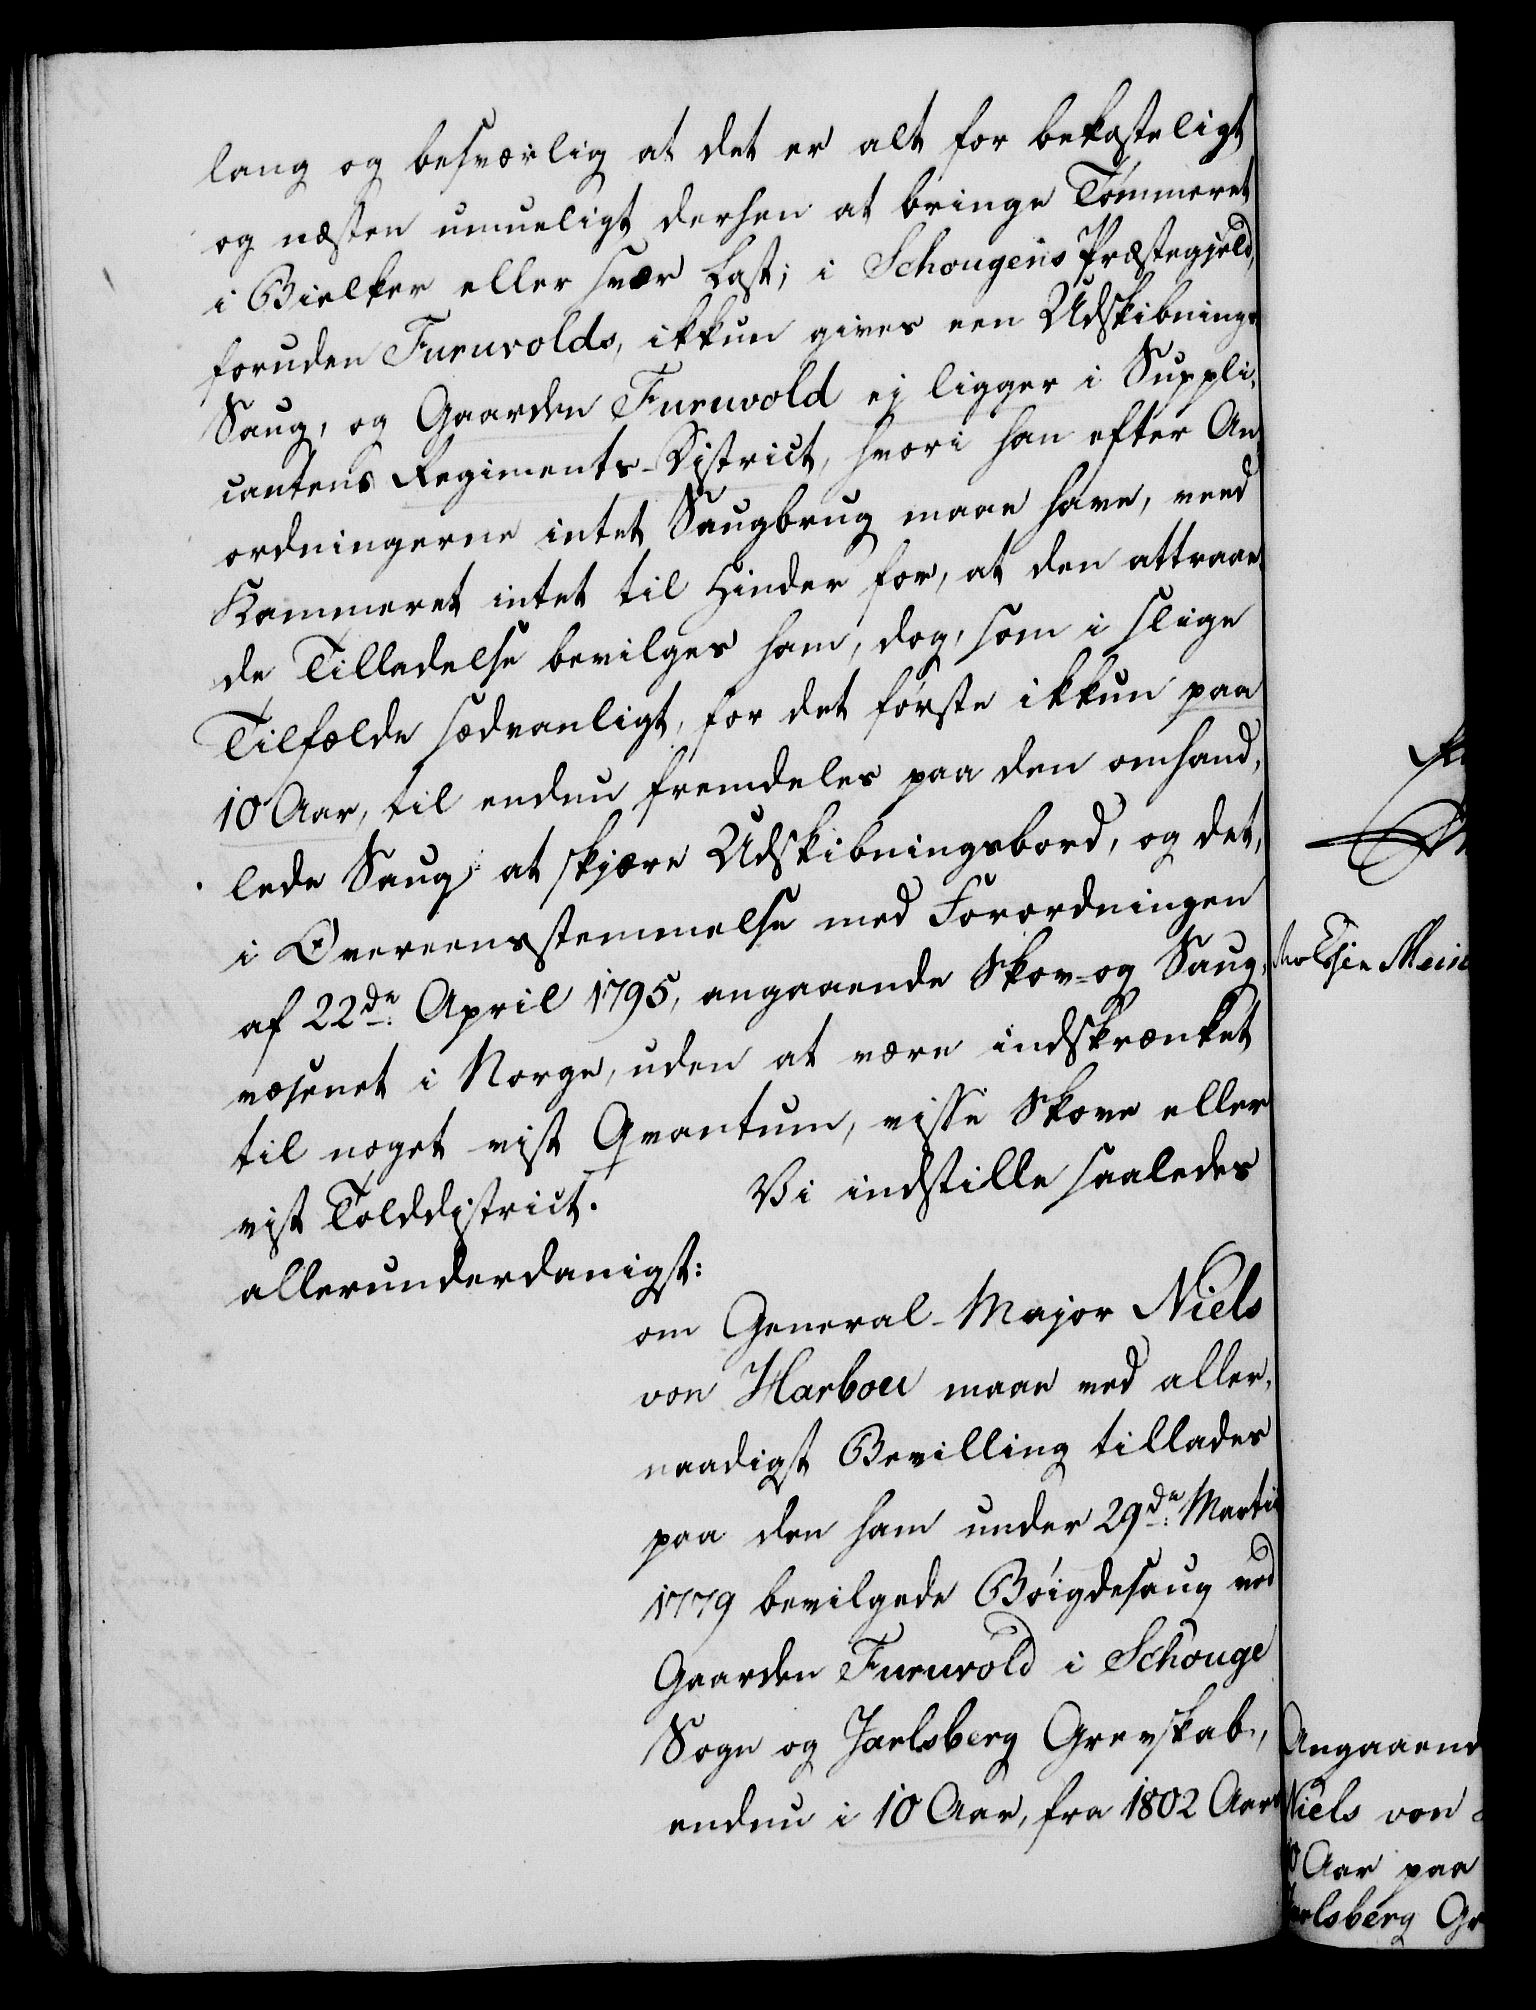 lang og besværlig at det er alt for bekosteligt
og næsten umueligt derhen at bringe Tømmeret
i Bielker eller svær Last; i Schougens Præstegjeld,
foruden Furuvolds, ikkun gives een Udskibnings
Saug, og Gaarden Furuvold ej ligger i Suppli-
cantens Regiments-District, hvori han efter An-
ordningerne intet Saugbrug maae have, veed
Kammeret intet til Hinder for, at den attraae-
de Tilladelse bevilges ham, dog, som i slige
Tilfælde sædvanligt, for det første ikkun paa
10 Aar, til endnu fremdeles paa den omhand-
lede Saug at skjære Udskibningsbord, og det,
i Overeensstemmelse med Forordningen
af 22de April 1795, angaaende Skov- og Saug-
væsenet i Norge, uden at være indskrænket
til noget vist Qvantum, visse Skove eller
vist Tolddistrict. Vi indstille saaledes
allerunderdanigst:
om General-Major Niels
von Harbou maae ved aller-
naadigst Bevilling tillades
paa den ham under 29de Martii
1779 bevilgede Bøigdesaug ved
Gaarden Furuvold i Schouge
Sogn og Jarlsberg Grevskab,
endnu i 10 Aar, fra 1802 Aars
Angaaend
Niels von
10 Aar paa
Jarlsberg Gr